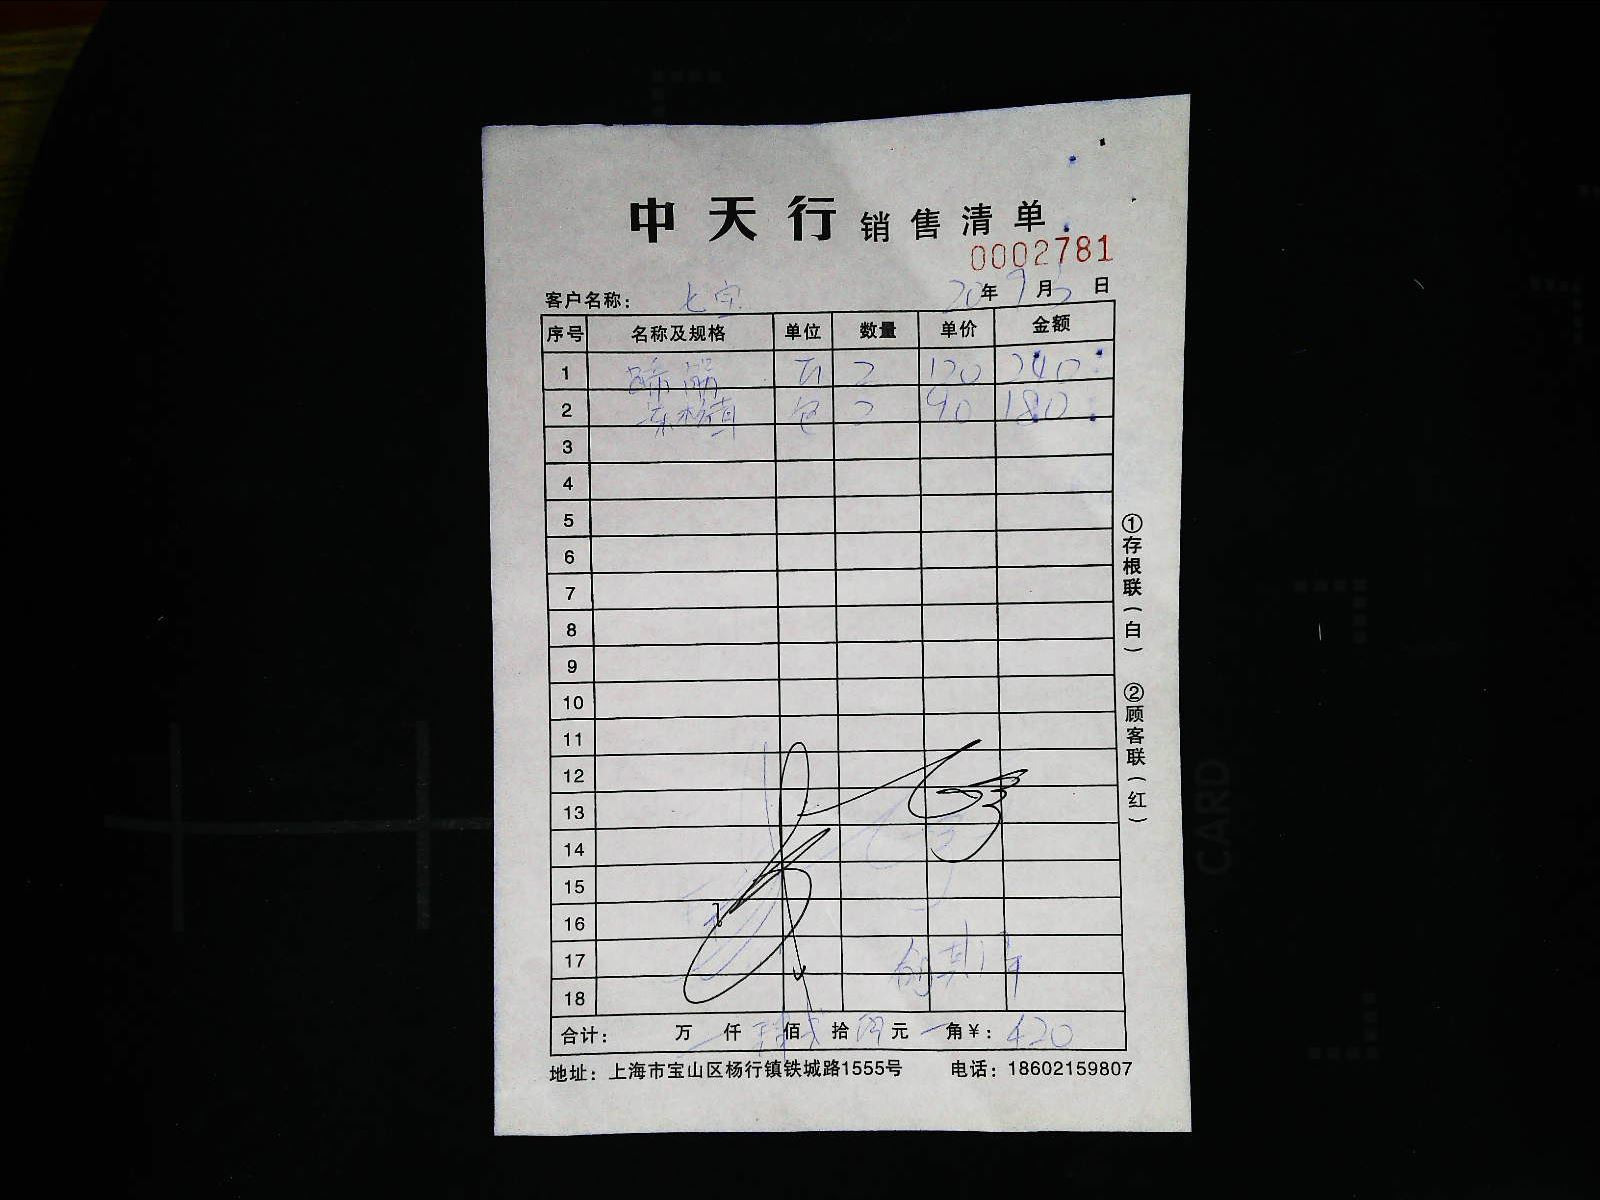 中天行 销售清单
0002781
客户名称： 七宝 20年9月5日
序号 名称及规格 单位 数量 单价 金额
1 蹄筋 2 120 240
2 包 2 90 180
3
4
5
6
7
8
9
10
11
12
13
14
15
16
17
18
合计： 万 仟 肆佰 贰拾 元 角 ¥：420
地址：上海市宝山区杨行镇铁城路1555号 电话：18602159807
①存根联（白） ②顾客联（红）
CARD